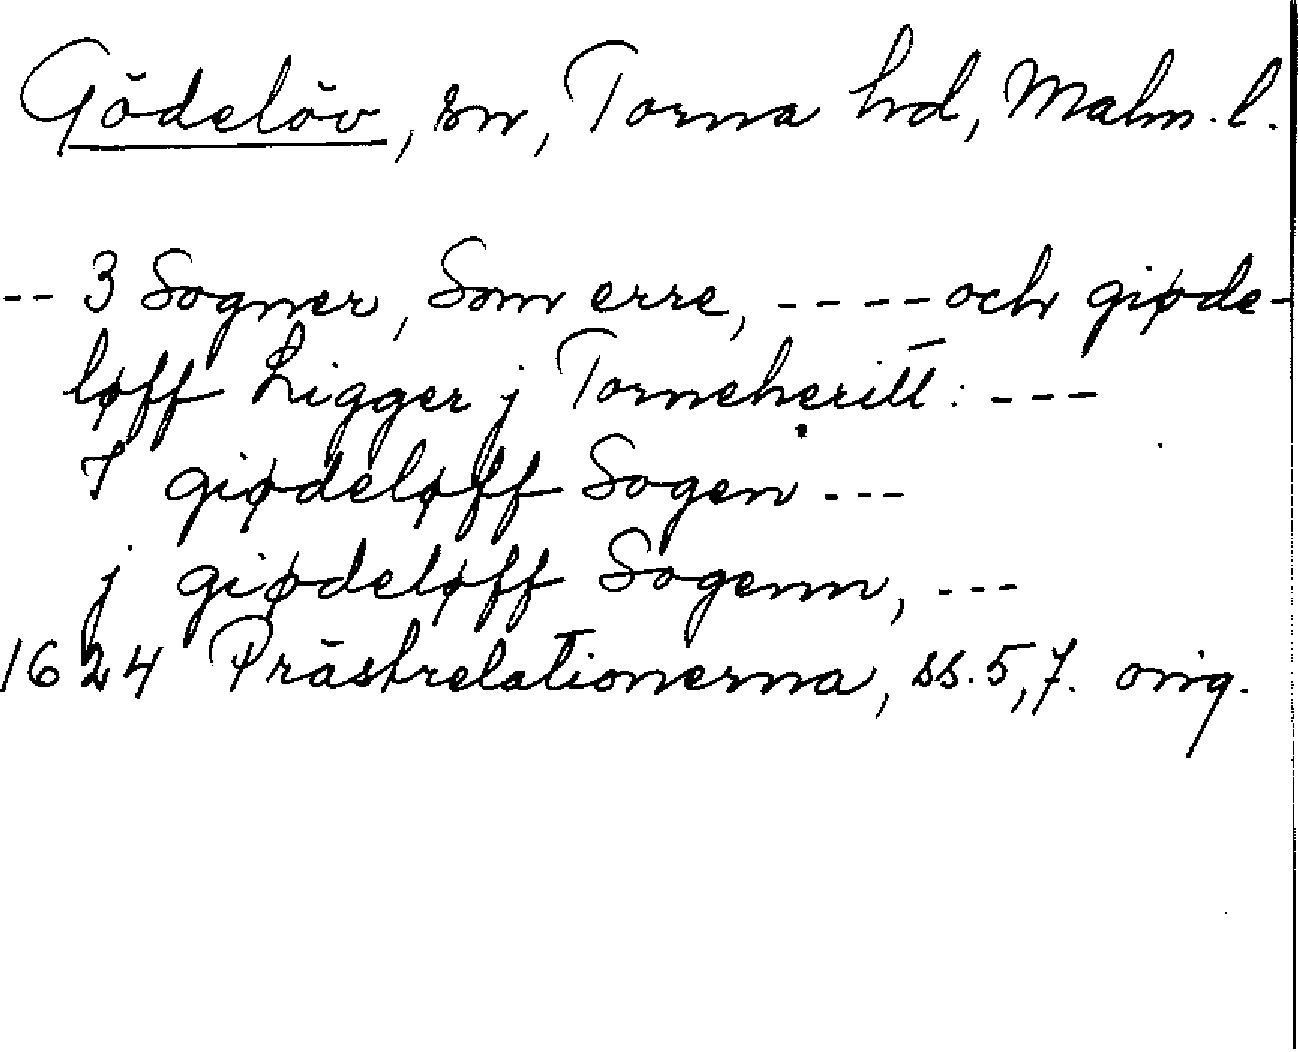 Gödelöv, sn, Torna hd, Malm. l.
-- 3 Sogner, Som erre, ---- och giøde-
løff Ligger j Torneheritt: ---
J giødeløff Sogen ---
j giødeløff Sogenn, ---
1624 Prästrelationerna, ss. 5, 7. orig.